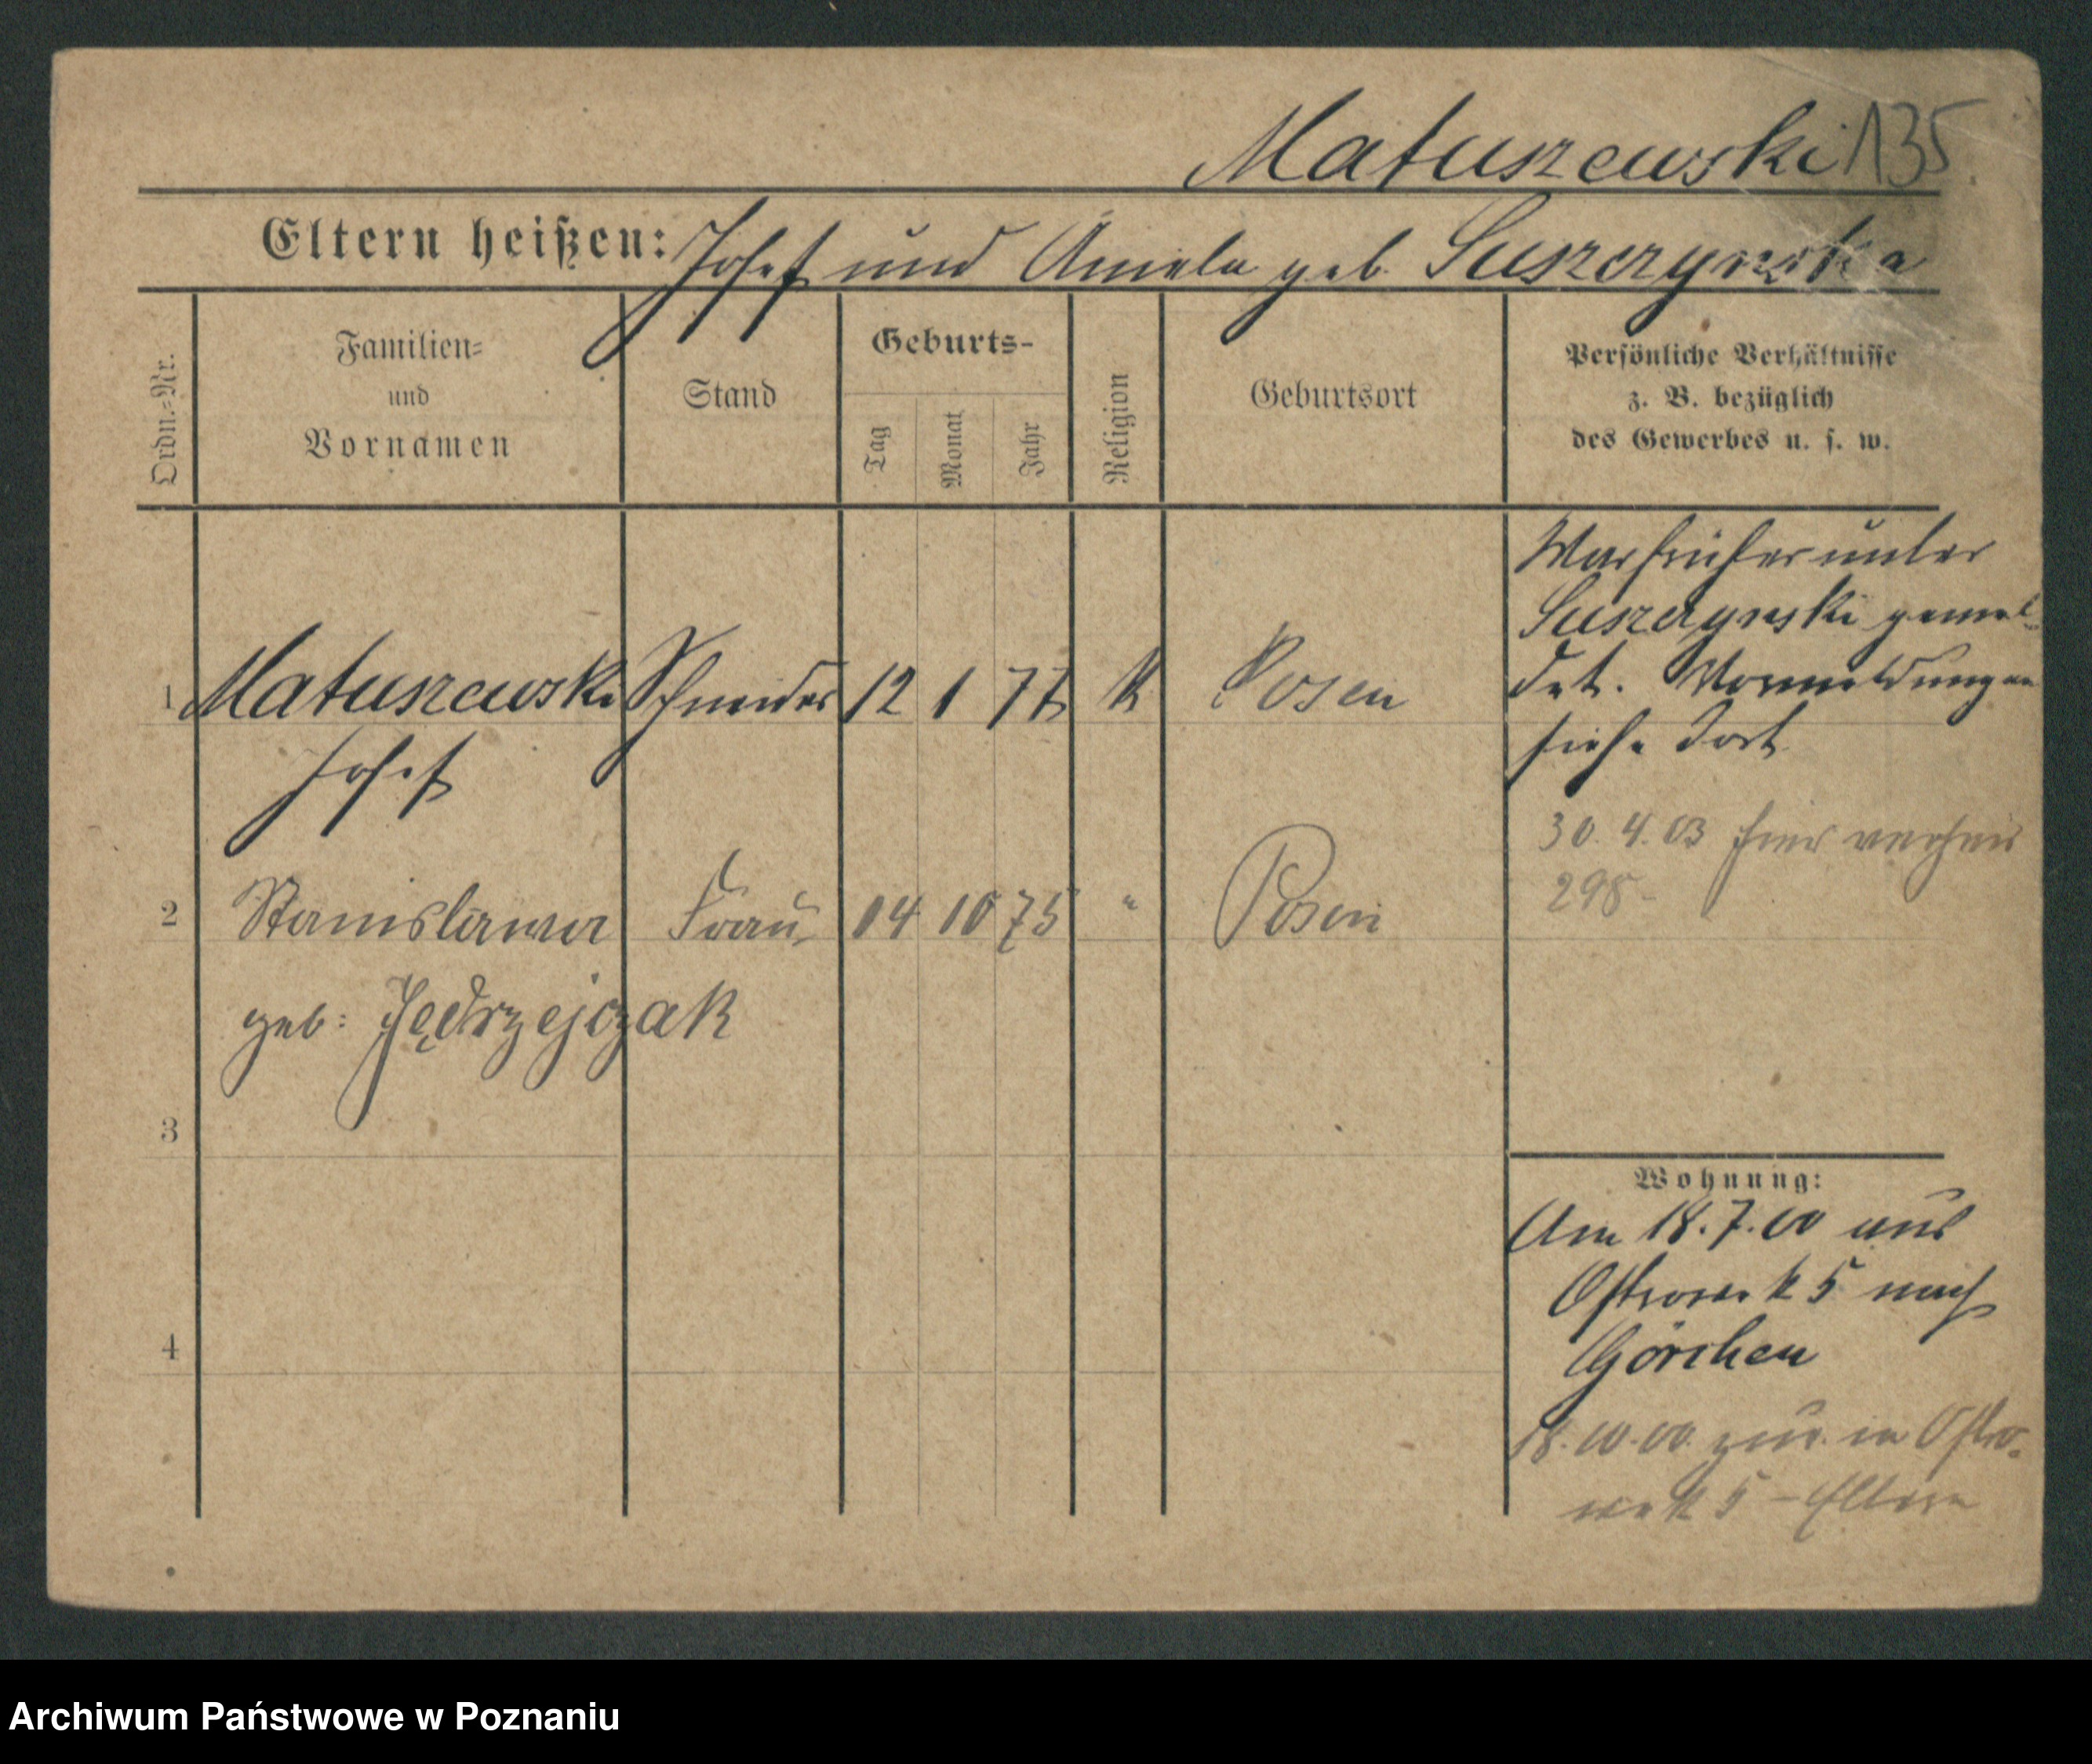 Matuszewski 135
Eltern heißen: Josef und Aniela geb. Suszczynska
Ordn.-Nr.
Familien- und Vornamen
Stand
Geburts-
Tag
Monat
Jahr
Religion
Geburtsort
Persönliche Verhältnisse
z. B. bezüglich
des Gewerbes u. s. w.
War früher unter
Suszczynski gemel-
det. Vormeldungen
siehe dort
1 Matuszewski Schneider 12 1 77 K Posen
Josef
30. 4. 03 hier
298-
2 Stanislawa Frau 14 10 75 " Posen
geb: Jędrzejczak
3
Wohnung:
Am 18. 7. 00 aus
Ostrowek 5 nach
Görchen
4
18. 10. 00 zur. in Ostro-
wek 5 - Eltern
Archiwum Państwowe w Poznaniu